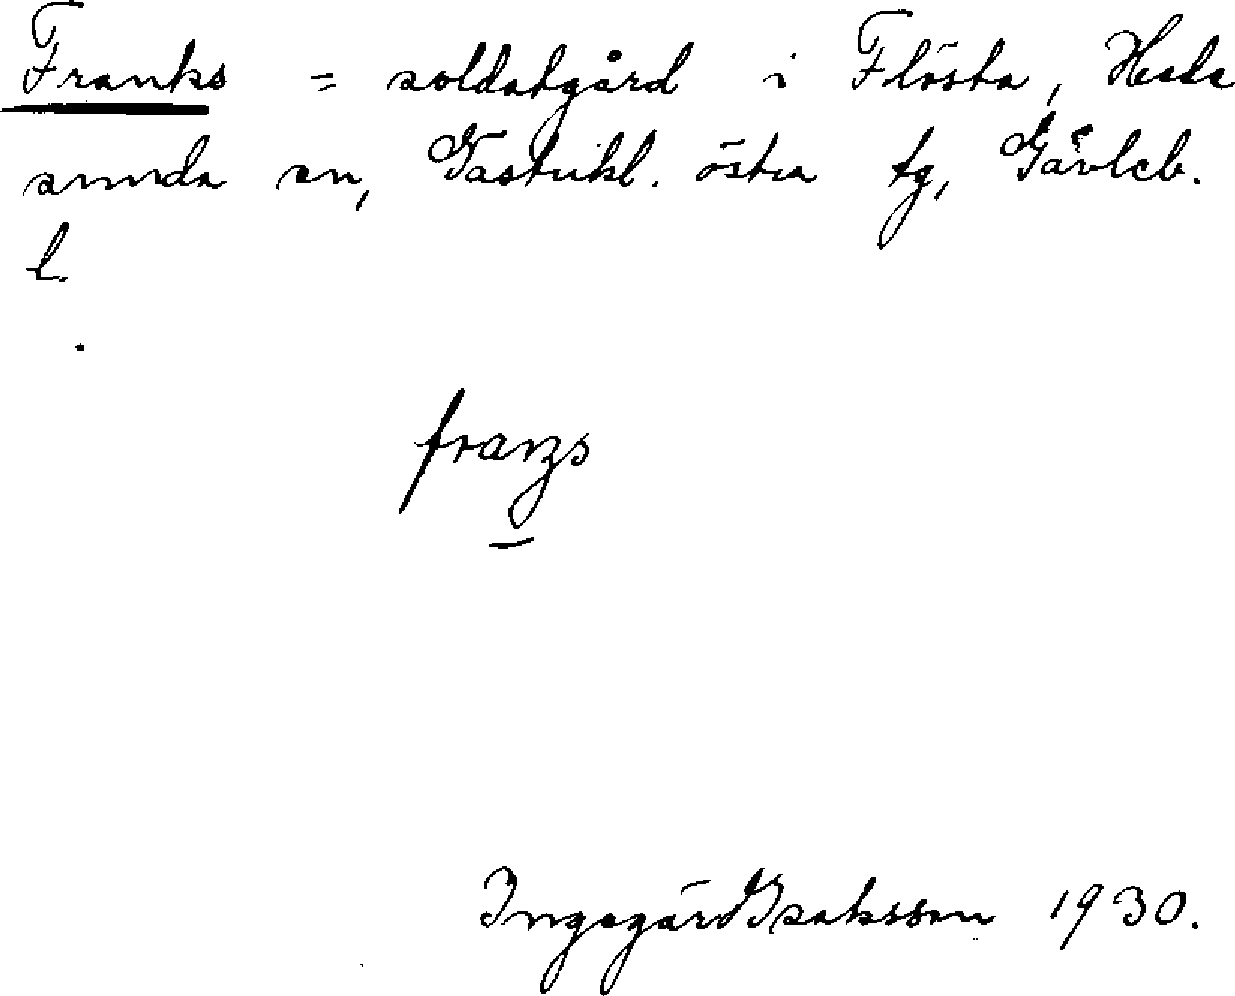 Franks = soldatgård i Flösta, Hede
sunda sn, Gästrikl. östra tg, Gävleb.
l.
fraŋs
Ingegärd Isaksson 1930.